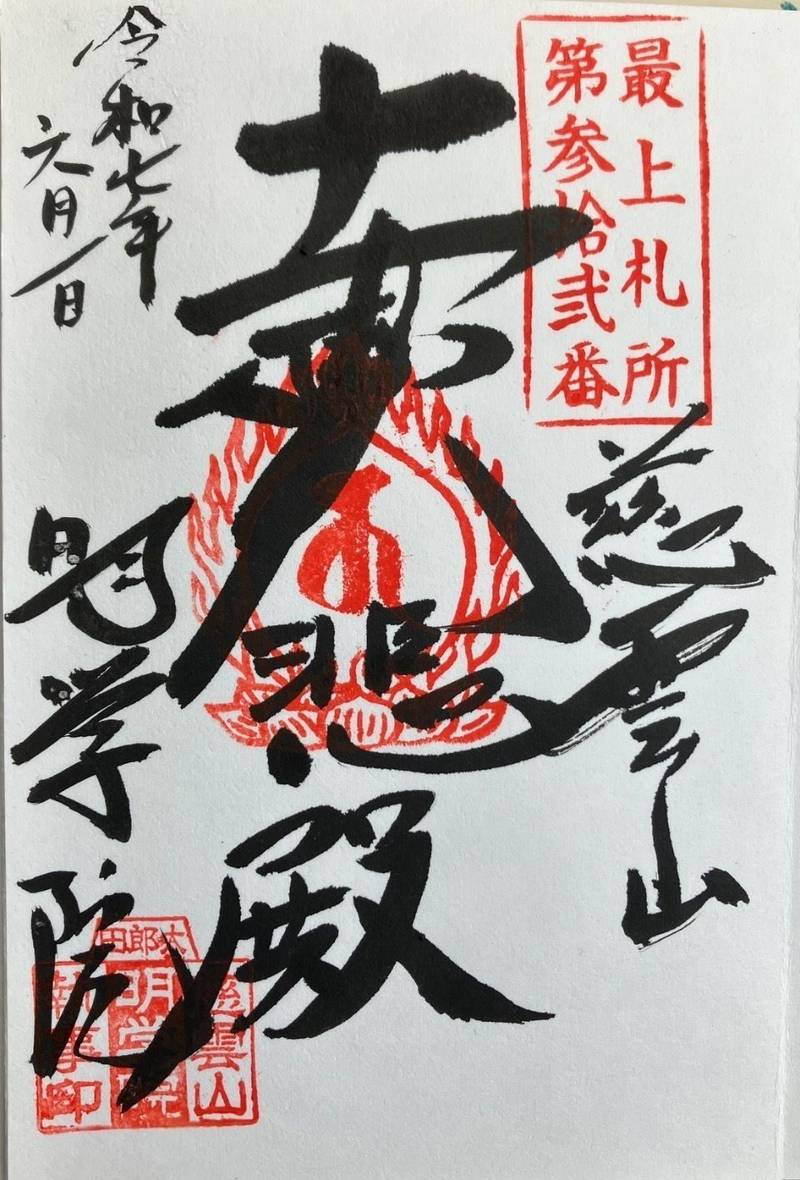 最上札所
第参拾弐番
慈雲山
悲殿
令和七年
六月一日
明学院
太郎田
慈雲山
明学院
執事印